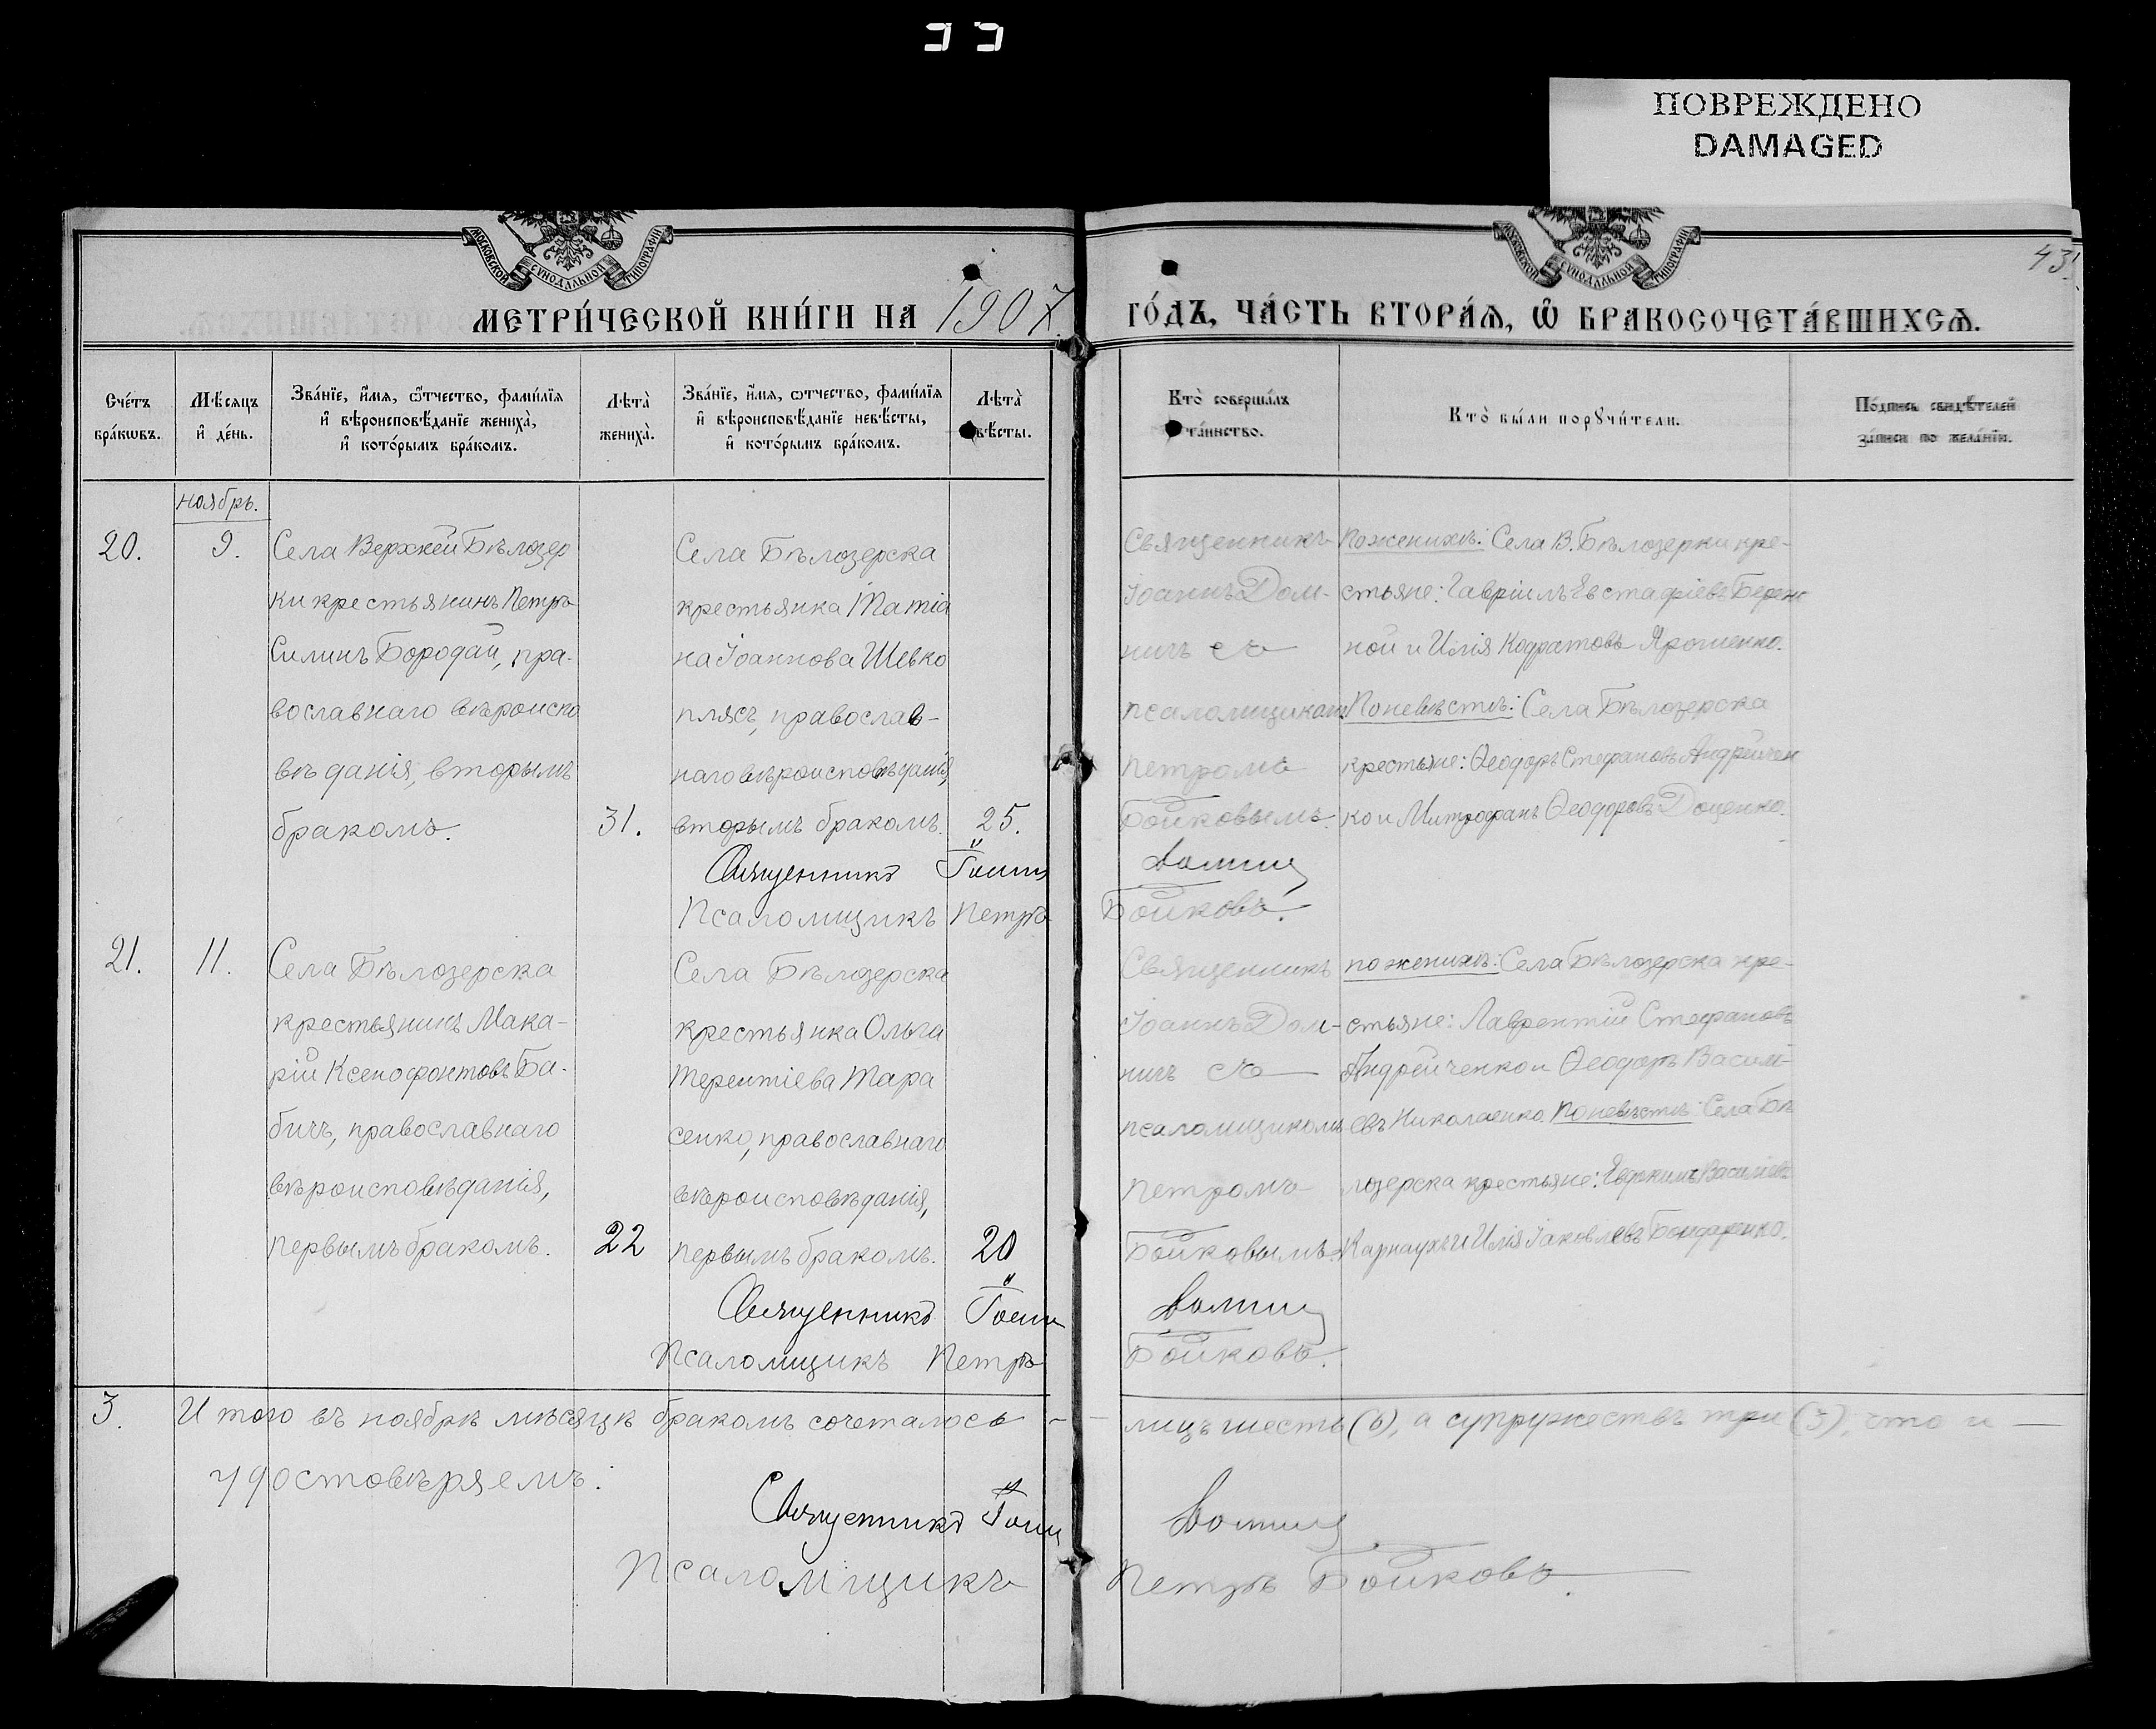 ПОВРЕЖДЕНО
DAMAGED
МОСКОВСКОЙ СѴНОДАЛЬНОЙ ТИПОГРАФІИ
МОСКОВСКОЙ СѴНОДАЛЬНОЙ ТИПОГРАФІИ
43.
МЕТРИ́ЧЕСКОЙ КНИ́ГИ НА 1907
ГО́ДЪ, ЧА́СТЬ ВТОРА́Ѧ, Ѡ҆ БРАКОСОЧЕТА́ВШИХСѦ.
Сче́тъ
бра́кωвъ.
Мѣ́сяцъ
и҆ де́нь.
Зва́нїе, и҆́мѧ, ѻ҆́тчество, фами́лїѧ
и҆ вѣроисповѣ́данїе жениха̀,
и҆ кото́рымъ бра́комъ.
Лѣта̀
жениха̀.
Зва́нїе, и҆́мѧ, ѻтчество, фами́лїѧ
и҆ вѣроисповѣ́данїе невѣ́сты,
и҆ кото́рымъ бра́комъ.
Лѣта̀
вѣ́сты.
Кто̀ соверша́лъ
та́инство.
Кто̀ бы́ли порꙋчи́тели.
По́дпись свидѣ́телей
за́писи по жела́нїю.
ноябрь.
20.
9.
Села Верхней Бѣлозер
ки крестьянинъ Петръ
Силинъ Бородай, пра-
вославнаго вѣроиспо
вѣданія, вторымъ
бракомъ.
31.
Села Бѣлозерска
крестьянка Татiа
на Іоаннова Шевко
плясъ, православ-
наго вѣроисповѣданія,
вторымъ бракомъ.
25.
Священникъ
Іоаннъ Дом-
нич съ
псаломщикомъ
Петромъ
Бойковымъ.
По женихѣ: Села В. Бѣлозерки кре-
стьяне: Гавріилъ Евстафіевъ Береж
ной и Илія Кодратовъ Ярошенко.
По невѣстѣ: Села Бѣлозерска
крестьяне: Ѳеодоръ Стефановъ Андрейчен
ко и Митрофанъ Ѳеодоровъ Доценко.
Священникъ Іоаннъ Домнич
Псаломщикъ Петръ Бойковъ.
21.
11.
Села Бѣлозерска
крестьянинъ Мака-
рій Ксенофонтовъ Ба-
бичъ, православнаго
вѣроисповѣданія,
первымъ бракомъ.
22
Села Бѣлозерска
крестьянка Ольга
Терентіева Тара
сенко, православнаго
вѣроисповѣданія,
первымъ бракомъ.
20
Священникъ
Іоаннъ Дом-
нич съ
псаломщикомъ
Петромъ
Бойковымъ.
по женихѣ: Села Бѣлозерска кре-
стьяне: Лаврентій Стефановъ
Андрейченко и Ѳеодоръ Васил-
евъ Николаенко. По невѣстѣ: Села Бѣ
лозерска крестьяне: Евфимъ Васильевъ
Карнаухъ и Илія Іаковлевъ Бондаренко.
Священникъ Іоаннъ Домнич
Псаломщикъ Петръ Бойковъ.
3.
Итого въ ноябрѣ мѣсяцѣ бракомъ сочеталось - - лицъ шесть (6), а супружествъ три (3), что и —
удостовѣряемъ:
Священникъ Іоаннъ Домнич
Псаломщикъ Петръ Бойковъ.